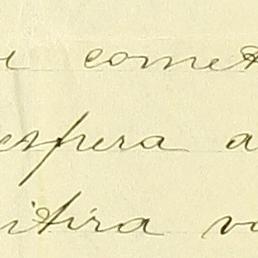 comet
espera a
itira vo